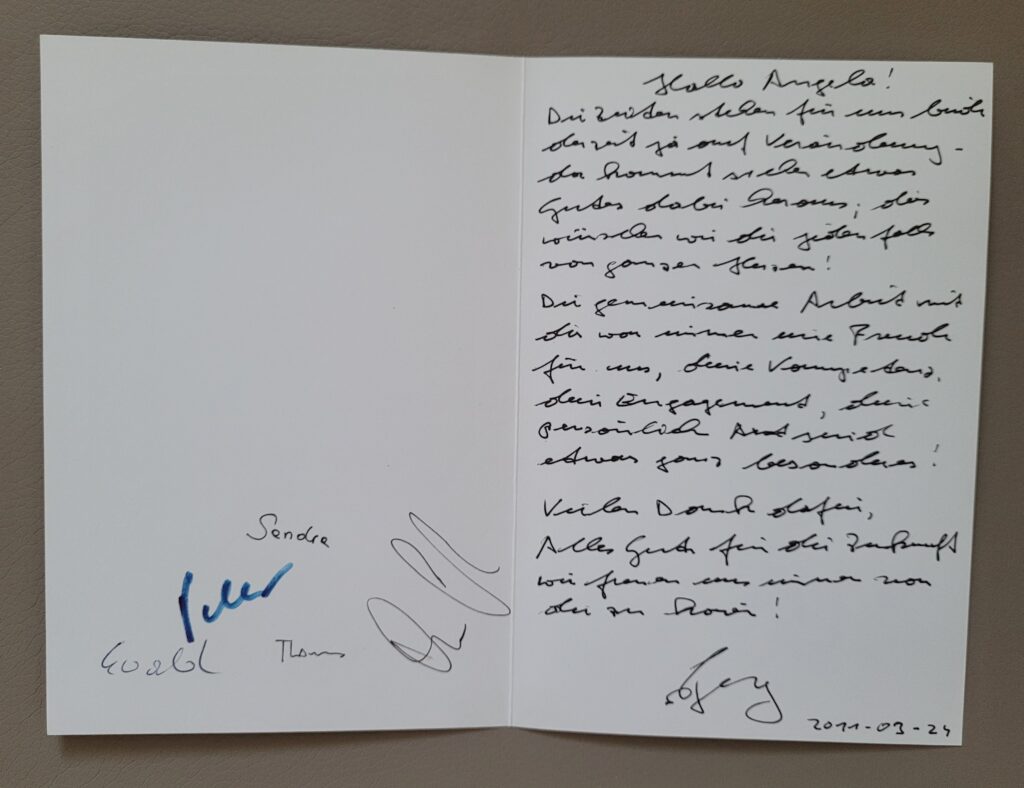 Sandra
Ewald
Thomas
Hallo Angela!
Die Zeiten stehen für uns beide
derzeit ja auf Veränderung -
da kommt sicher etwas
Gutes dabei heraus, dies
wünschen wir dir jedenfalls
von ganzem Herzen!
Die gemeinsame Arbeit mit
dir war immer eine Freude
für uns, deine Kompetenz,
dein Engagement, deine
persönliche Art sind
etwas ganz besonderes!
Vielen Dank dafür,
Alles Gute für die Zukunft
wir freuen uns immer von
dir zu hören!
2011-03-24